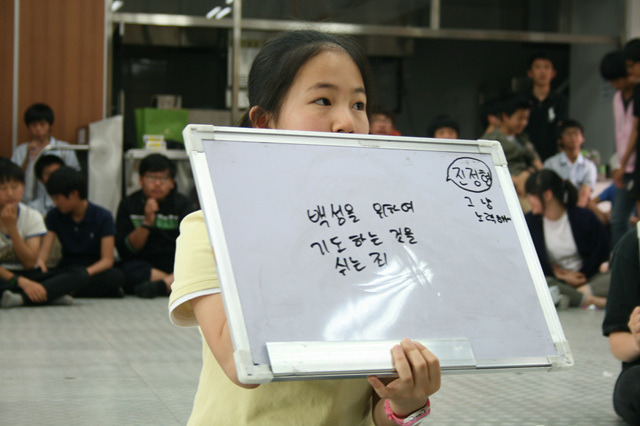 백성을 위하여
기도하는 것을
쉬는 죄
진정형
그냥
노력해